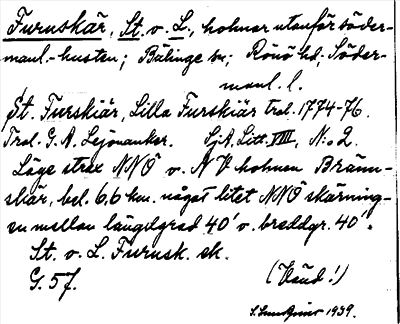 Furuskär, St. o. L., holmar utanför söder-
manl.-kusten; Bälinge sn; Rönö hd, Söder-
manl. l.
St. Furskiär, Lilla Furskiär trol. 1774-76.
Trol. G. A. Lejonanker. SjA, Litt. VIII, N:o 2.
Läge strax NNÖ o. N V holmen Bränn-
skär, bel. 6,6 km. något litet NNÖ skärning-
en mellan längdgrad 40' o. breddgr. 40'.
St. o. L. Furusk. ek.
G. 57. (Känd!)
1939.